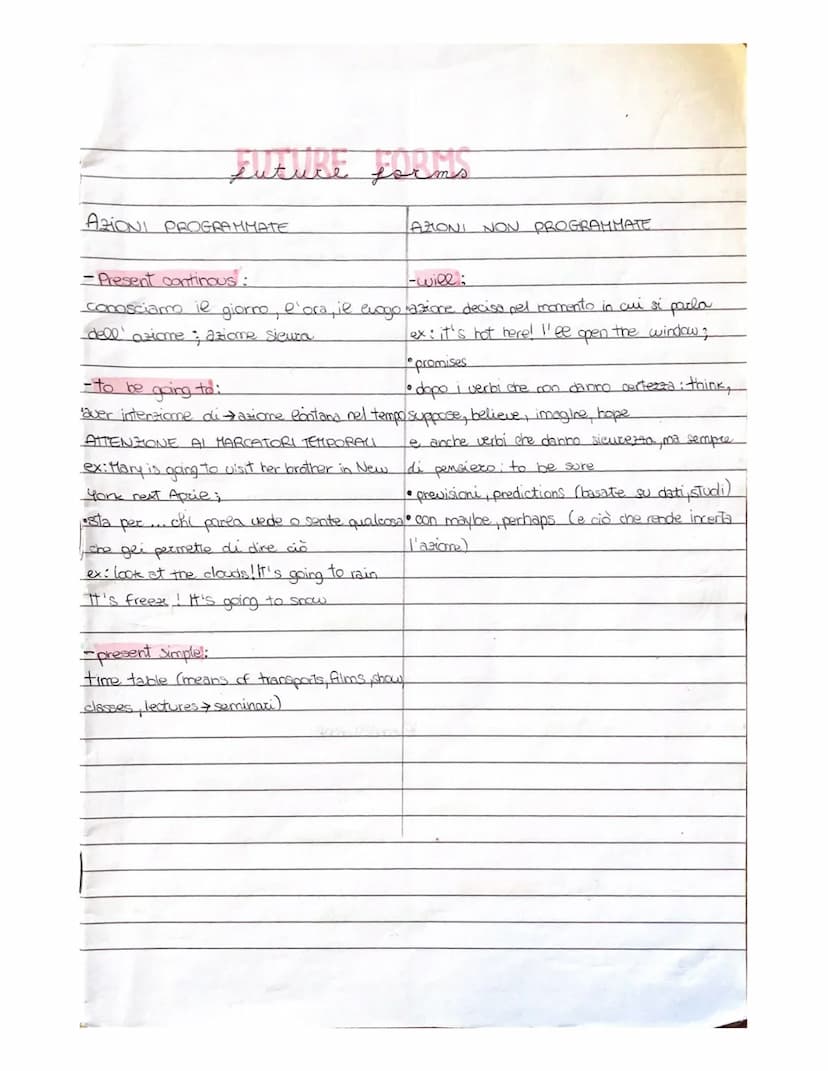 FUTURE FORMS
future forms
AZIONI PROGRAMMATE
- Present continous:
conosciamo il giorno, l'ora, il luogo
dell' azione; azione sicura
- to be going to:
aver intenzione di → azione lontana nel tempo
ATTENZIONE AI MARCATORI TEMPORALI
ex: Mary is going to visit her brother in New
York next April;
• sta per ... chi parla vede o sente qualcosa
che gli permette di dire ciò
ex: look at the clouds! It's going to rain
It's freez ! It's going to snow
- present simple:
time table (means of transports, films, show,
classes, lectures → seminari)
AZIONI NON PROGRAMMATE
- will:
• azione decisa nel momento in cui si parla
ex: it's hot here! I'll open the window;
• promises
• dopo i verbi che non danno certezza: think,
suppose, believe, imagine, hope
e anche verbi che danno sicurezza, ma sempre
di pensiero: to be sure
• previsioni, predictions (basate su dati, studi)
• con maybe, perhaps (e ciò che rende incerta
l'azione)